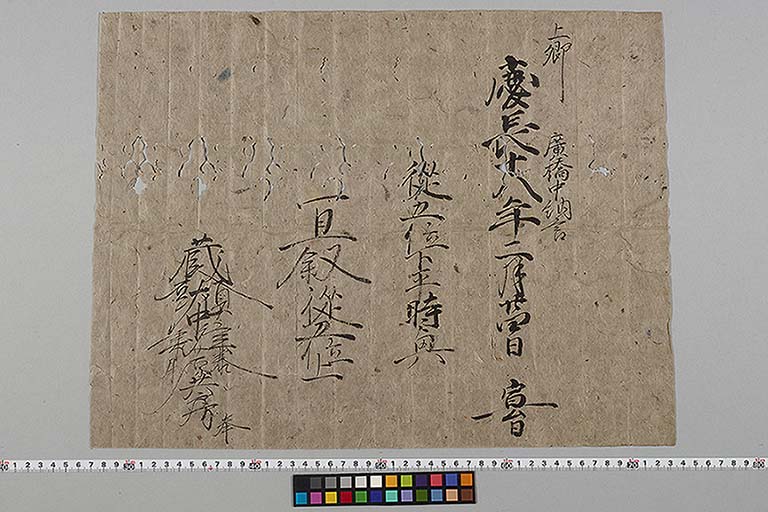 上卿 廣橋中納言
慶長十八年二月廿四日 宣旨
從五位下王時興
宜叙從五位上
蔵人頭左大弁藤原 奉